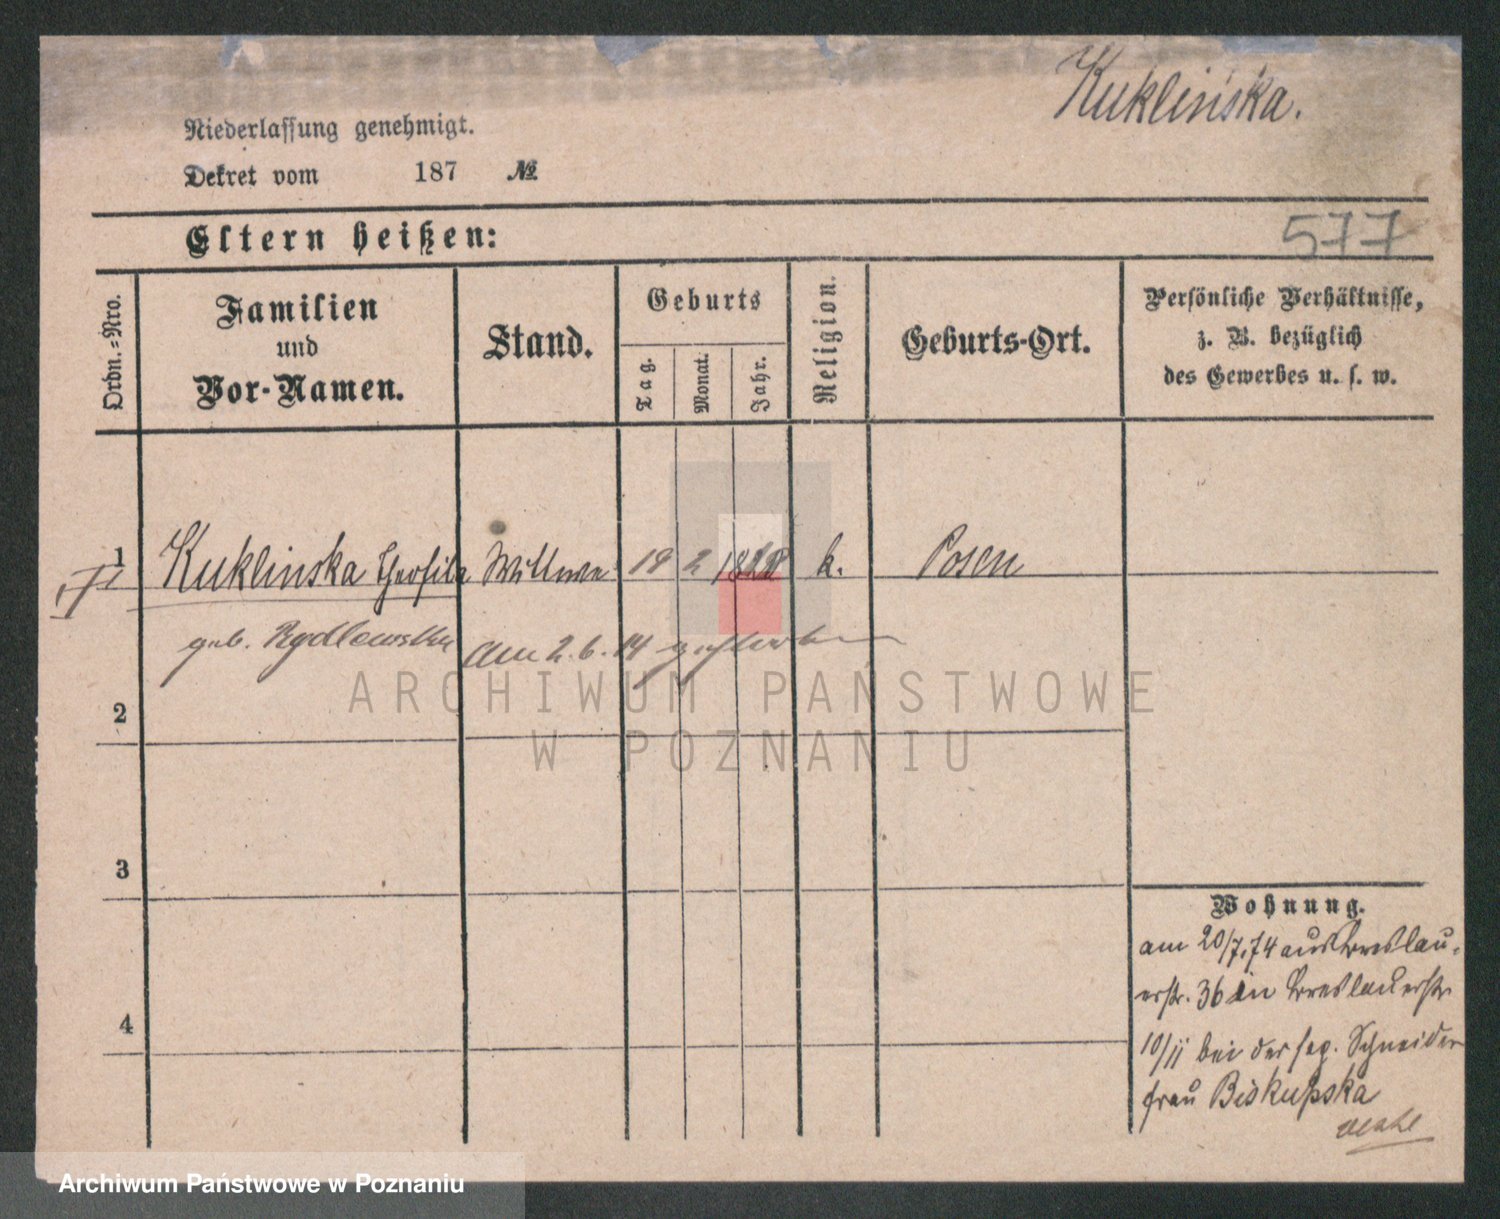 Kuklińska.
Niederlassung genehmigt.
Dekret vom 187 №
577
Eltern heißen:
Ordn.=Nro.
Familien
und
Vor-Namen.
Stand.
Geburts
Tag.
Monat.
Jahr.
Religion.
Geburts-Ort.
Persönliche Verhältnisse,
z. B. bezüglich
des Gewerbes u. s. w.
1 Kuklinska Theofila Wittwe 19 2 k. Posen
geb. Rydlewska am 2.6.14 gestorben
2
3
4
Wohnung.
am 20/7.74 aus Breslau-
erstr. 36 in Breslauerstr
10/11 bei der sep. Schneider
frau Biskupska
ARCHIWUM PAŃSTWOWE
W POZNANIU
Archiwum Państwowe w Poznaniu